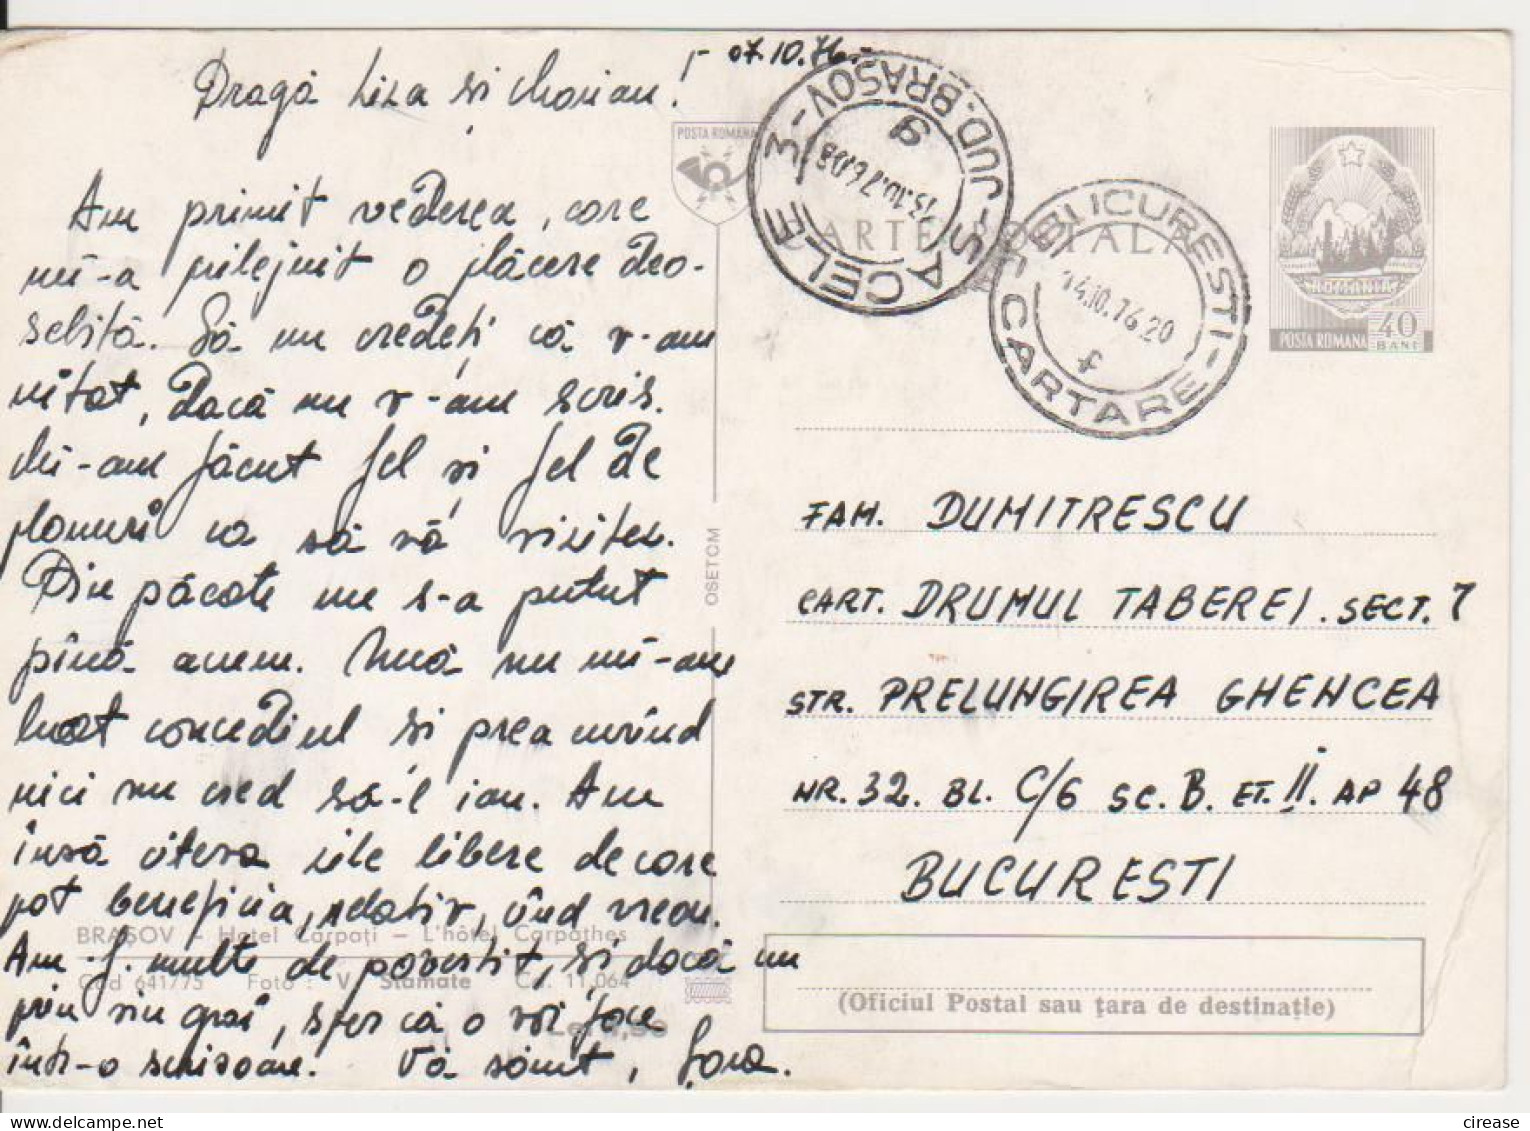 07.10.76.
Dragă Liza și Marian!
Am primit vederea, care
mi-a prilejuit o plăcere deo-
sebită. Să nu credeți că v-am
uitat, dacă nu v-am scris.
Mi-am făcut fel și fel de
planuri ca să vă vizitez.
Din păcate nu s-a putut
pînă acum. Încă nu mi-am
luat concediul și prea curînd
nici nu cred să-l iau. Am
însă cîteva zile libere de care
pot beneficia, relativ, cînd vreau.
Am f. multe de povestit, și dacă nu
prin viu grai, sper că o voi face
într-o scrisoare. Vă sărut,
BRAȘOV - Hotel Carpați - L'hôtel Carpathes
Cod 641775 Foto: V. Stamate Cd. 11.064
OSETCM
POSTA ROMANA
CARTE POSTALA
SACELE 3 - JUD. BRASOV
13.10.76.08
9
BUCURESTI
CARTARE
14.10.76.20
f
ROMANIA
POSTA ROMANA
40
BANI
FAM. DUMITRESCU
CART. DRUMUL TABEREI. SECT. 7
STR. PRELUNGIREA GHENCEA
NR. 32. BL. C/6 SC. B. ET. II. AP 48
BUCURESTI
(Oficiul Postal sau țara de destinație)
cirease
delcampe.net